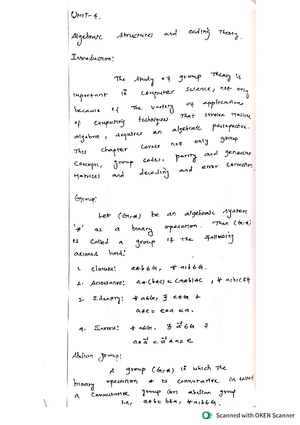 UNIT-4.
Algebraic Structures and Coding Theory.
Introduction:
The study of group Theory is
important in computer science, not only
because of the variety of applications
of computing techniques that involve
algebra, requires an algebraic perspective.
This chapter covers not only group
concepts, group codes, parity and generator
Matrices and decoding and error correction
Group:
Let (G,*) be an algebraic system
'*' as a binary operation. Then (G,*)
is called a group if the following
axioms hold:
1. Closure: a*b∈G, ∀ a,b∈G.
2. Associative: a*(b*c) = (a*b)*c , ∀ a,b,c∈G
3. Identity: ∀ a∈G, ∃ e∈G ∋
a*e = e*a = a.
4. Inverse: ∀ a∈G, ∃ a⁻¹∈G ∋
a*a⁻¹ = a⁻¹*a = e
Abelian group:
A group (G,*) in which the
binary operation * is commutative is called
a commutative group (or) abelian group
i.e., a*b = b*a, ∀ a,b∈G.
Scanned with OKEN Scanner